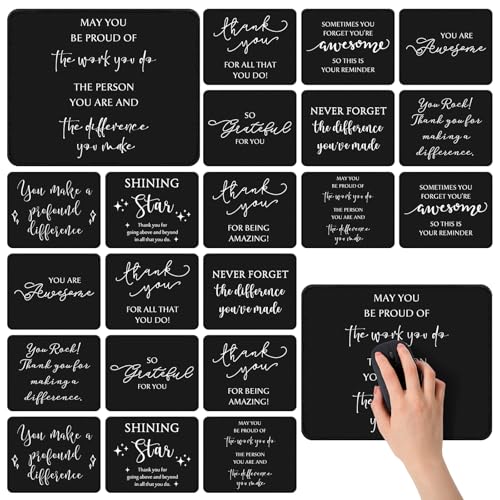 MAY YOU
BE PROUD OF
the work you do
THE PERSON
YOU ARE AND
the difference
you make
thank
you
FOR ALL THAT
YOU DO!
SOMETIMES YOU
FORGET YOU'RE
awesome
SO THIS IS
YOUR REMINDER
YOU ARE
Awesome
SO
Grateful
FOR YOU
NEVER FORGET
the difference
you've made
You Rock!
Thank you for
making a
difference.
You make a
profound
difference
SHINING
Star
Thank you for
going above and beyond
in all that you do.
thank
you
FOR BEING
AMAZING!
MAY YOU
BE PROUD OF
the work you do
THE PERSON
YOU ARE AND
the difference
you make
SOMETIMES YOU
FORGET YOU'RE
awesome
SO THIS IS
YOUR REMINDER
YOU ARE
Awesome
thank
you
FOR ALL THAT
YOU DO!
NEVER FORGET
the difference
you've made
MAY YOU
BE PROUD OF
the work you do
PERSON
YOU
the
you
You Rock!
Thank you for
making a
difference.
SO
Grateful
FOR YOU
thank
you
FOR BEING
AMAZING!
You make a
profound
difference
SHINING
Star
Thank you for
going above and beyond
in all that you do.
MAY YOU
BE PROUD OF
the work you do
THE PERSON
YOU ARE AND
the difference
you make